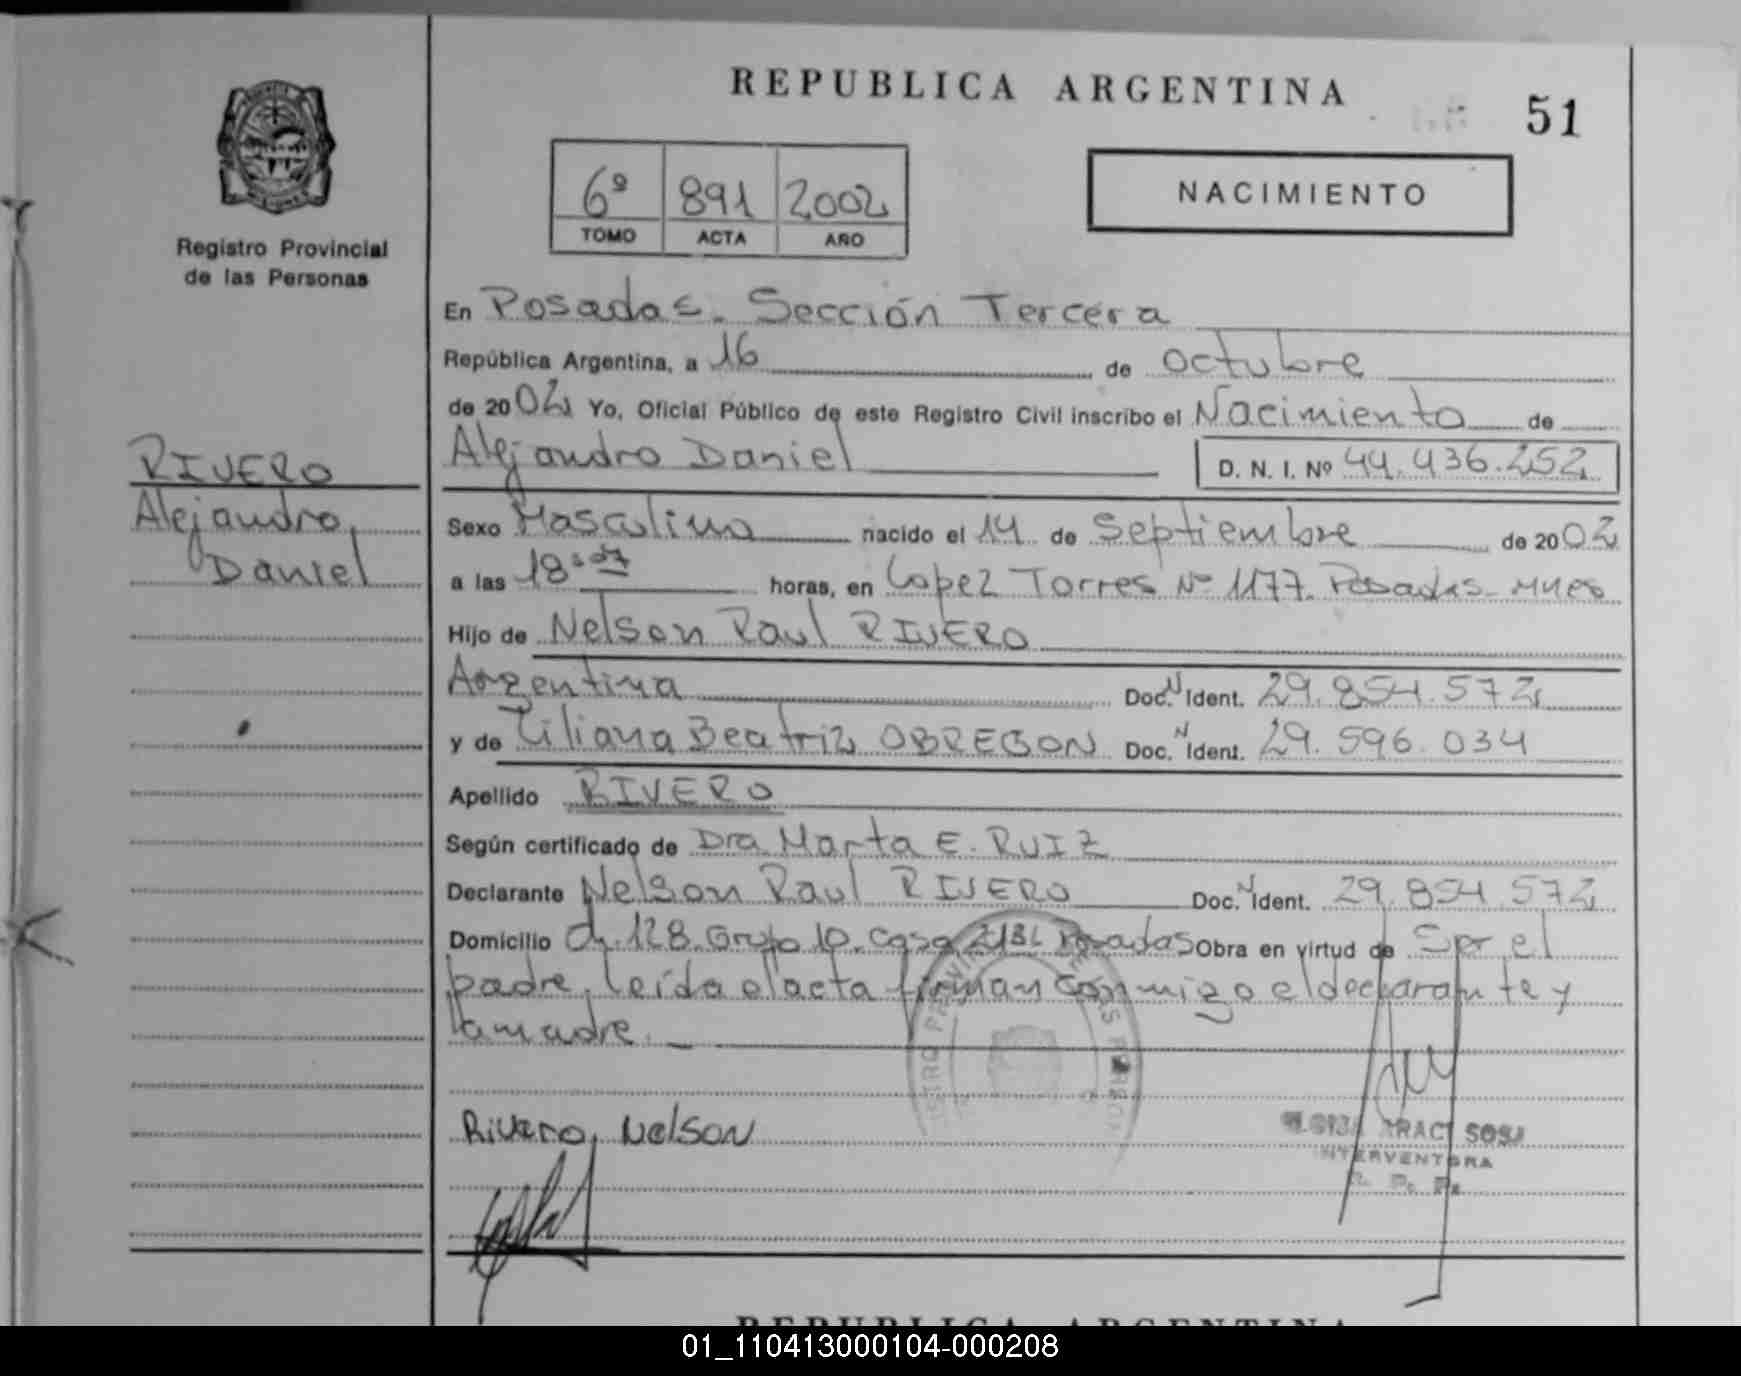 REPUBLICA ARGENTINA
51
6º 891 2002
TOMO ACTA AÑO
NACIMIENTO
Registro Provincial
de las Personas
En Posadas. Sección Tercera
República Argentina, a 16 de octubre
de 2002 Yo, Oficial Público de este Registro Civil inscribo el Nacimiento de
Alejandro Daniel D. N. I. Nº 44.436.252
RIVERO
Alejandro
Daniel
Sexo Masculino nacido el 14 de Septiembre de 2002
a las 18 horas, en Lopez Torres Nº 1177. Posadas
Hijo de Nelson Raul RIVERO
Argentina Doc. N Ident. 29.854.572
y de Liliana Beatriz OBREGON Doc. N Ident. 29.596.034
Apellido RIVERO
Según certificado de Dra Marta E. RUIZ
Declarante Nelson Raul RIVERO Doc. N Ident. 29.854.572
Domicilio Ch. 128 Grupo 10. casa Posadas Obra en virtud de Ser el
padre, leída el acta firman conmigo el declarante y
la madre.
Rivero, Nelson
INTERVENTORA
R. P. P.
REPUBLICA ARGENTINA
01_110413000104-000208